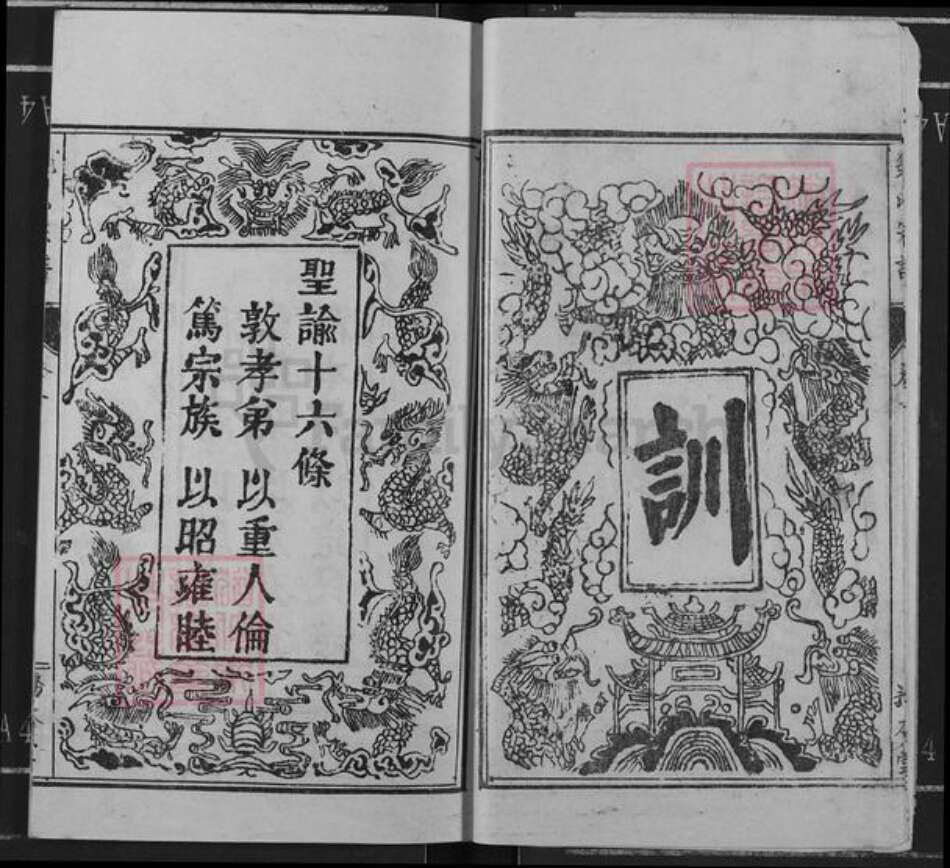 訓
聖諭十六條
敦孝弟以重人倫
篤宗族以昭雍睦